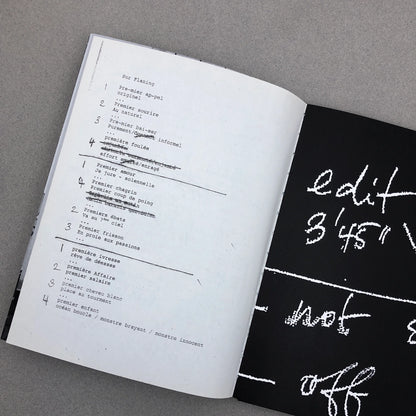 Sur Flasinc
1 Pre-mier ap-pel
originel
...
2 Premier sourire
Au naturel
...
3 Pre-mier bai-ser
Purement/ informel
...
4 première foulée
effort /enragé
1 Premier amour
Je jure - solennelle
...
4 Premier chagrin
Premier coup de poing
...
2 Première ébats
Va au 7ème ciel
...
3 Premier frisson
En proie aux passions
...
1 première ivresse
rêve de déesses
...
2 première Affaire
premier salaire
...
3 premier cheveu blanc
place au tourment
...
4 premier enfant
océan boucle / monstre bruyant / monstre innocent
edit
3'45"
- not
- off